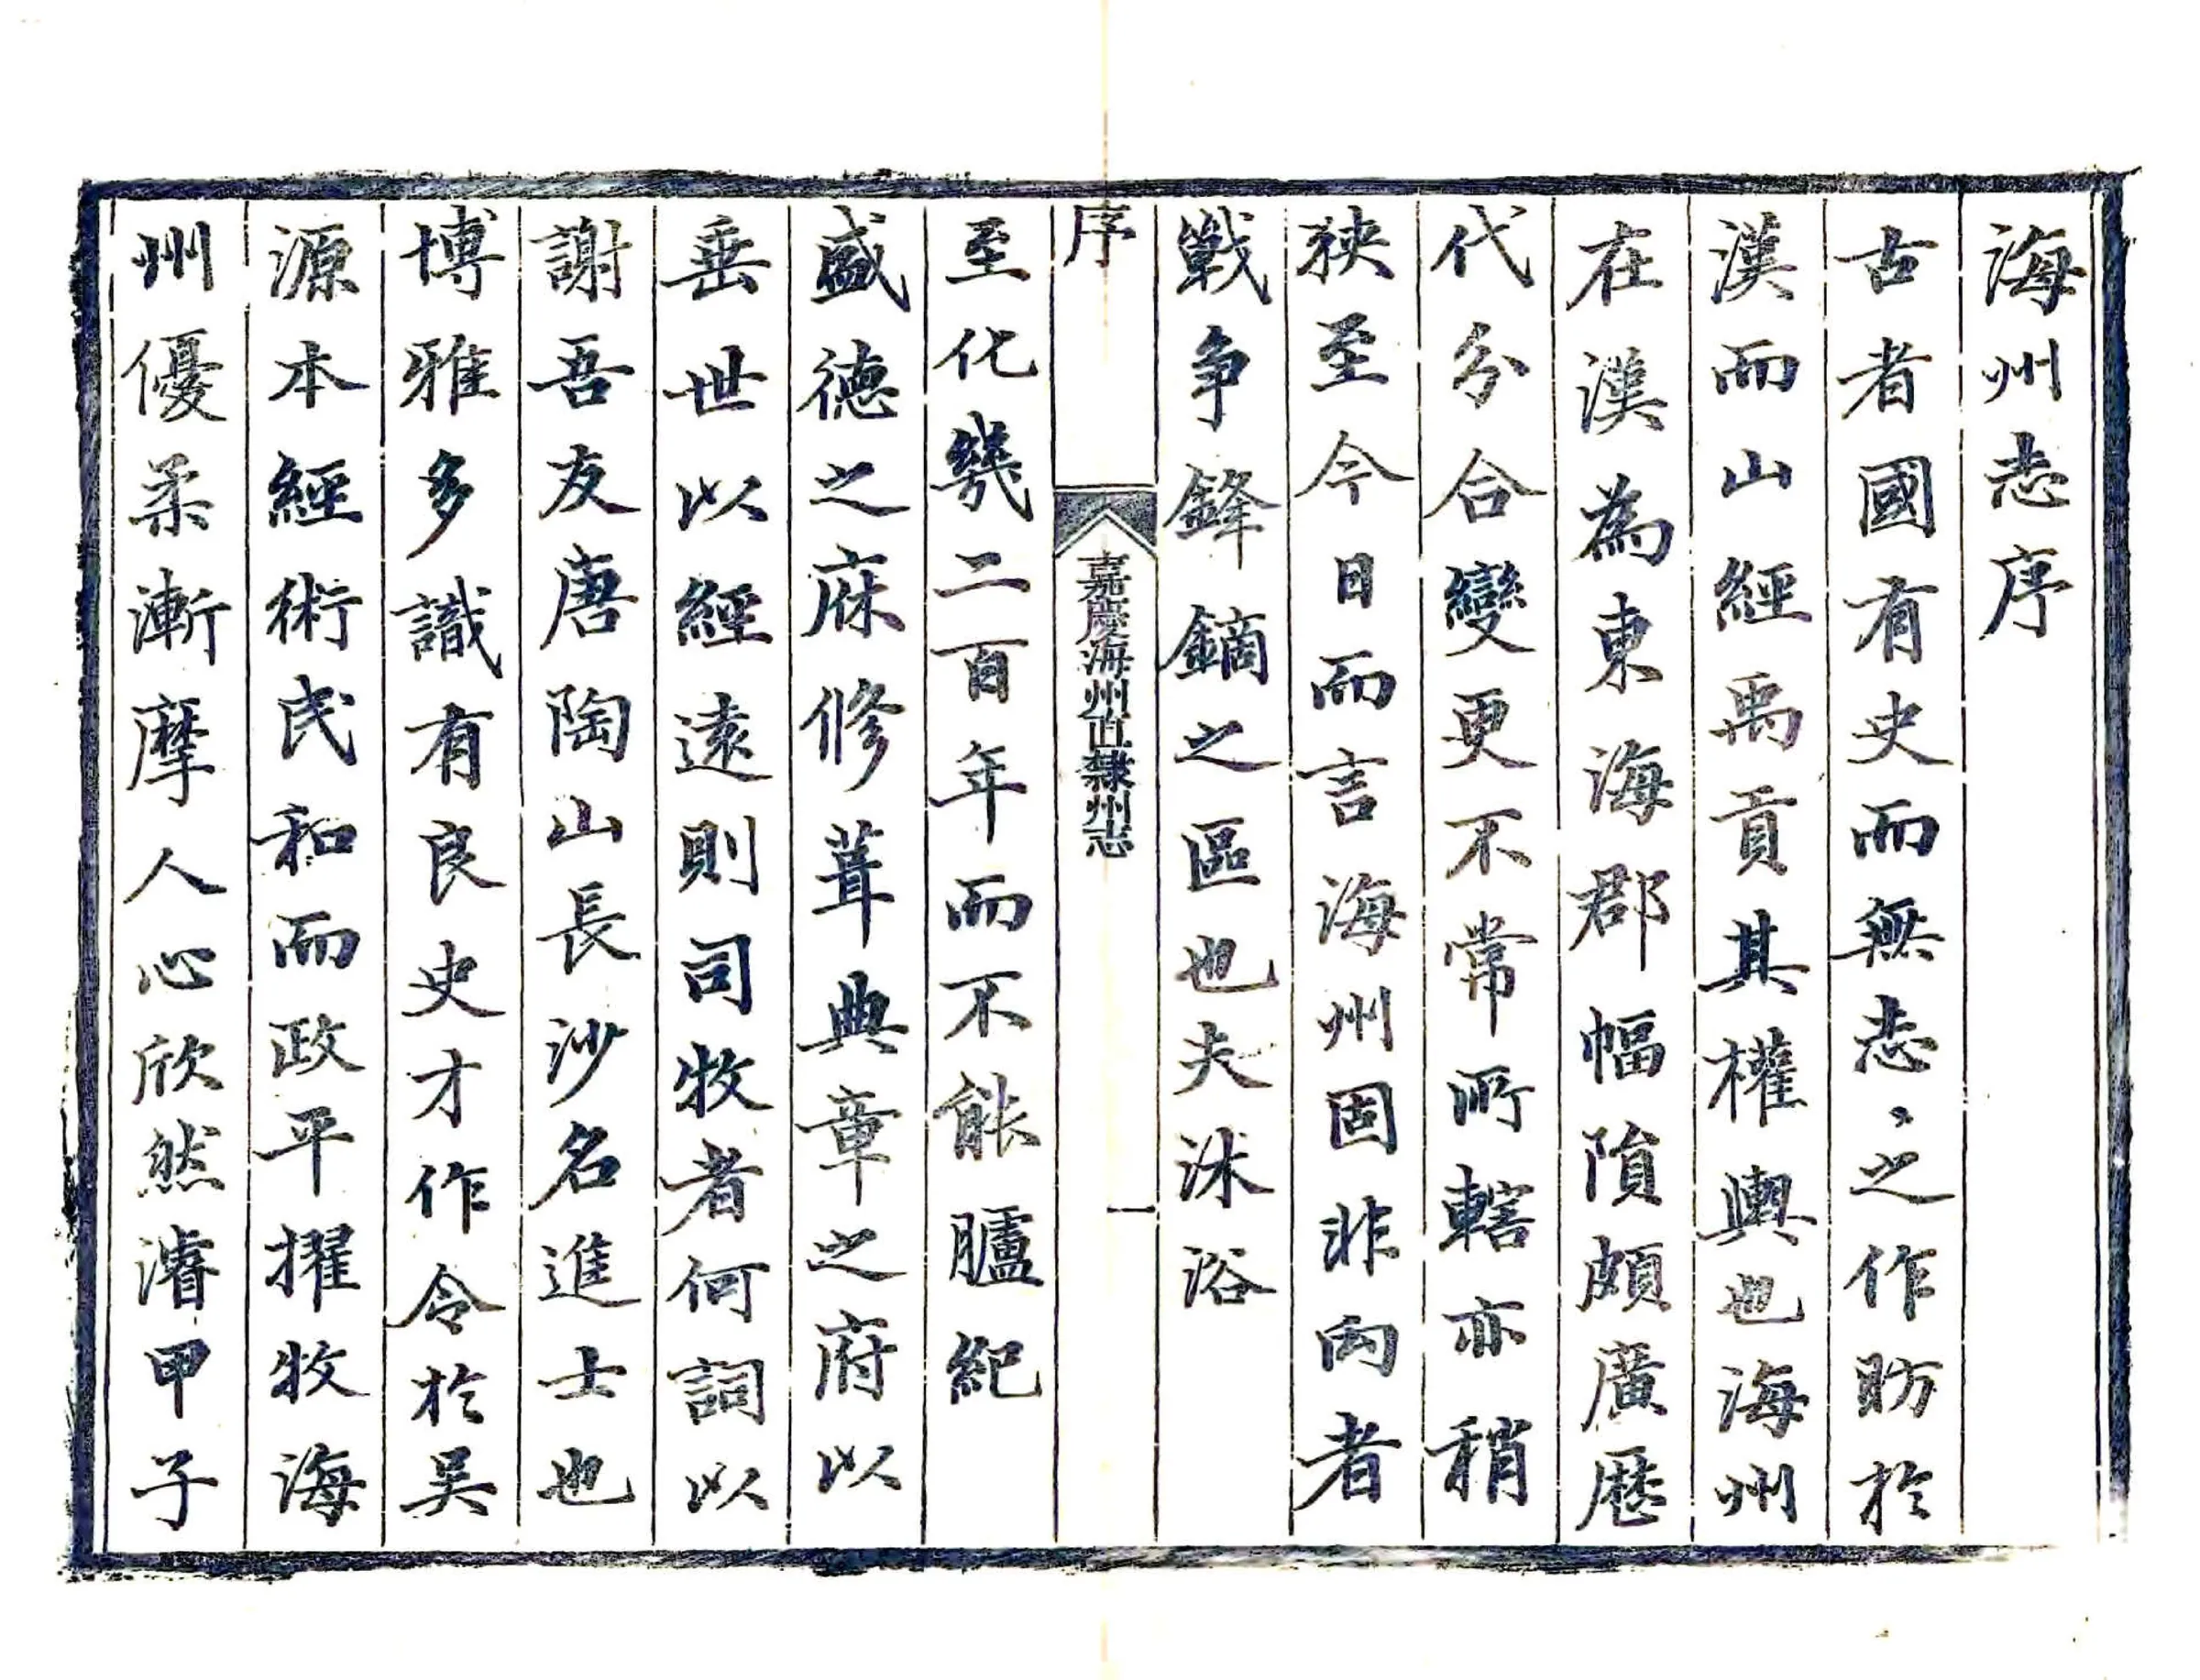 海州志序
古者國有史而無志〻之作昉於
漢而山經禹貢其權輿也海州
在漢為東海郡幅隕頗廣歷
代分合變更不常所轄亦稍
狹至今日而言海州固非向者
戰爭鋒鏑之區也夫沐浴
序
嘉慶海州直隸州志
一
至化幾二百年而不能臚紀
盛德之庥修葺典章之府以
垂世以經遠則司牧者何詞以
謝吾友唐陶山長沙名進士也
博雅多識有良史才作令於吳
源本經術民和而政平擢牧海
州優柔漸摩人心欣然濬甲子